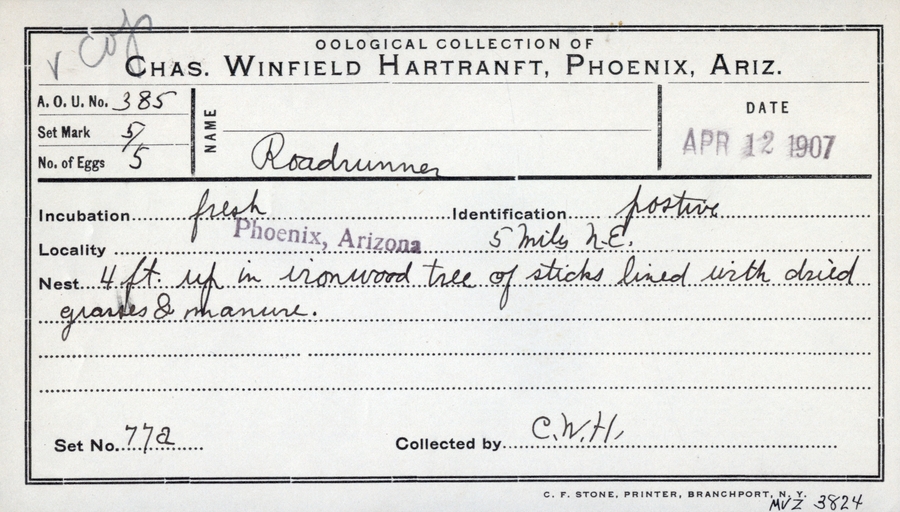 v Copy
OOLOGICAL COLLECTION OF
CHAS. WINFIELD HARTRANFT, PHOENIX, ARIZ.
A. O. U. No. 385
Set Mark 5/5
No. of Eggs 5
NAME
Roadrunner
DATE
APR 12 1907
Incubation fresh Identification postive
Locality Phoenix, Arizona 5 miles N.E.
Nest 4 ft. up in ironwood tree of sticks lined with dried
grasses & manure.
Set No. 77a Collected by C.W.H.
C. F. STONE, PRINTER, BRANCHPORT, N. Y.
MVZ 3824